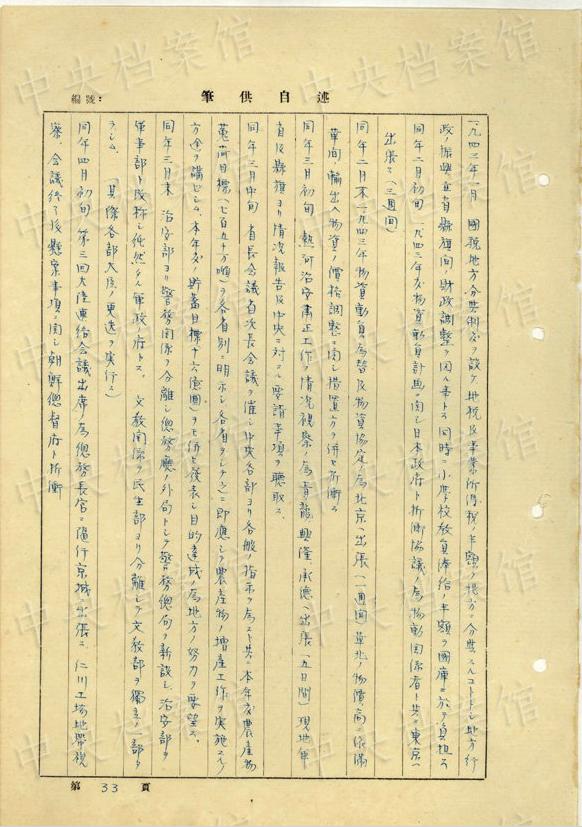 編號：
筆供自述
一九四三年一月　國稅地方分與制度ヲ設ケ地稅及事業所得稅ノ半額ヲ地方ニ分與スルコトトシ地方行
政ノ振興並省縣旗間ノ財政調整ヲ図ル事トス　同時ニ小學校教員俸給ノ半額ヲ國庫ニ於テ負担ス
同年二月初旬　一九四三年度物資動員計画ニ関シ日本政府ト折衝協議ノ為物動関係者ト共ニ東京ヘ
出張ス（三週間）
同年二月末　一九四三年物資動員ノ為替及物資協定ノ為北京ヘ出張（一週間）華北ノ物價高ニ依ル滿
華間ノ輸出入物資ノ價格調整ニ関シ措置方ヲ併セ折衝ス
同年三月初旬　熱河治安肅正工作ノ情况視察ノ為青龍、興隆、承德ヘ出張（五日間）現地軍
省及縣旗ヨリ情况報告及中央ニ対スル要請事項ヲ聽取ス
同年三月中旬　省長會議省次長會議ヲ催シ中央各部ヨリ各般ノ指示ヲ為スト共ニ本年度農産物
蒐荷目標（七百五十万噸）ヲ各省別ニ明示シ各省ヲシテ之ニ即應シテ農産物ノ增産工作ヲ実施スル
方途ヲ講ゼシム　本年度ノ貯蓄目標（十六億圓）ヲモ併セ發表シ目的達成ノ為地方ノ努力ヲ要望ス
同年三月末　治安部ヨリ警務関係ヲ分離シ總務廳ノ外局トシテ警務總局ヲ新設シ、治安部ヲ
軍事部ト改称シ純然タル軍政府トス。　文教関係ヲ民生部ヨリ分離シテ文教部ヲ獨立ノ一部タ
ラシム。　（其際各部大臣ノ更迭ヲ実行ス）
同年四月初旬　第三回大陸連絡會議出席ノ為總務長官ニ隨行京城ヘ出張ス　仁川工場地帶視
察、会議終了後懸案事項ニ関シ朝鮮總督府ト折衝
第　33　頁
中央档案馆